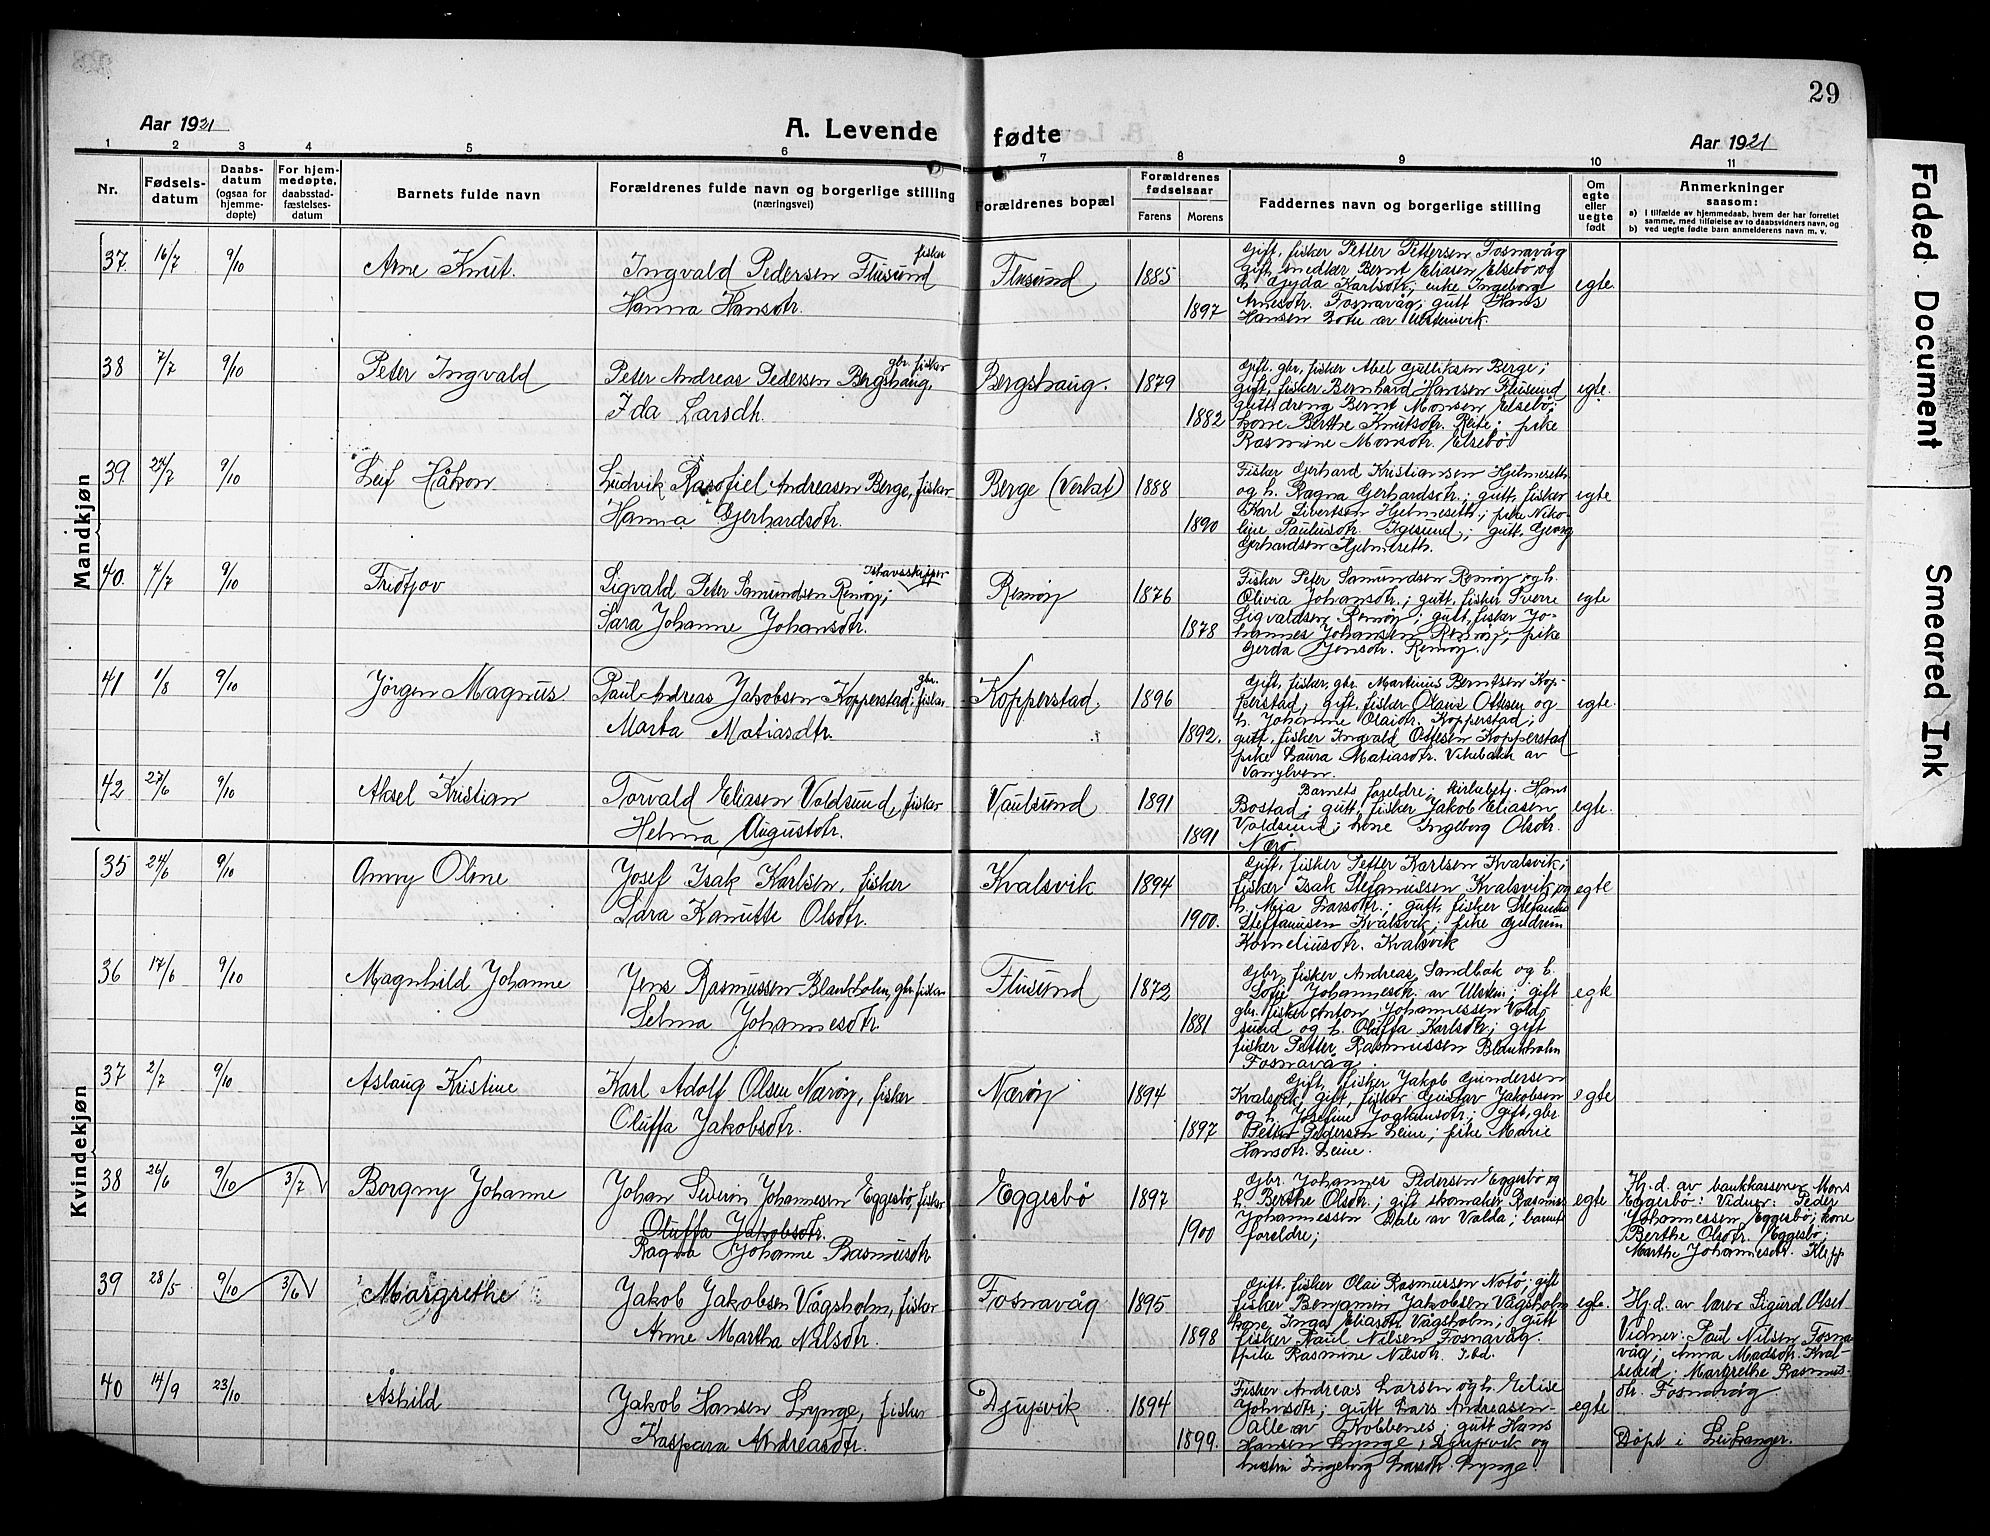 29
Aar 1921
A. Levende fødte
Aar 1921
1 2 3 4 5 6 7 8 9 10 11
Nr.
Fødselsdatum
Daabsdatum (ogsaa for hjemmedøpte)
For hjemmedøpte, daabsstadfæstelsesdatum
Barnets fulde navn
Forældrenes fulde navn og borgerlige stilling (næringsvei)
Forældrenes bopæl
Forældrenes fødselsaar
Farens Morens
Faddernes navn og borgerlige stilling
Om egte eller uegte født
Anmerkninger saasom:
a) I tilfælde av hjemmedaab, hvem der har forrettet samme, med tilføielse av to daabsvidners navn, og
b) ved uegte fødte barn anmelderens navn m. v.
Mandkjøn
37. 16/7 9/10 Arne Knut.
fisker
Ingvald Pedersen Flusund
Hanna Hansdtr.
Flusund 1885 1897
Gift. fisker Petter Pettersen Fosnavåg
gift, smedlær Bernt Eliasen Elsebø og
h. Gyda Karlsdtr; enke Ingeborg
Arnesdtr. Fosnavåg; gutt Hans
Hansen Botn av
egte.
38 7/7 9/10 Peter Ingvald
gbr. fisker
Peter Andreas Pedersen Bergshaug,
Ida Larsdtr.
Bergshaug. 1879 1882
Gift. gbr. fisker Abel Gulliksen Berge;
gift, fisker Bernhard Hansen Flusund
gutt dreng Bernt Monsen Elsebø;
kone Berthe Knutsdtr. Reite; pike
Rasmine Monsdtr. Elsebø
egte.
39. 27/7 9/10 Leif Håkon
Ludvik Rasofiel Andreasen Berge, fisker
Hanna Gerhardsdtr.
Berge (Verket) 1888 1890
Fisker Gerhard Kristiansen Hjelmeseth
og h. Ragna Gerhardsdtr.; gutt, fisker
Karl Sivertsen Hjelmeseth; pike Niko-
line Paulusdtr. Igesund; gutt, Georg
Gerhardsen Hjelmeseth.
egte
40. 4/7 9/10 Fridtjov
Ishavsskipper
Sigvald Peter Samundsen Remøy;
Sara Johanne Johansdtr.
Remøy 1876 1878
Fisker Peter Samundsen Remøy og h.
Olivia Johansdtr.; gutt, fisker Sverre
Sigvaldsen Remøy; gutt, fisker Jo-
hannes Johansen Remøy; pike
Gerda Jensdtr. Remøy.
egte
41 1/8 9/10 Jörgen Magnus
gbr.
Paul Andreas Jakobsen Kopperstad; fisker
Marta Matiasdtr.
Kopperstad. 1896 1892.
Gift, fisker, gbr. Martinus Berntsen Kop-
perstad; gift, fisker Olaus Ottesen og
h. Johanne Olaidtr. Kopperstad;
gutt, fisker Ingvald Ottesen Kopperstad
pike Laura Matiasdtr. Vikebakk av
Vanylven.
egte.
42 27/6 9/10 Aksel Kristian
Torvald Eliasen Voldsund, fisker
Helma Augustdtr.
Vaulsund 1891 1891
Barnets foreldre; kirkebetj. Hans
Bostad; gutt, fisker Jakob Eliasen
Voldsund; kone Ingeborg Olsdtr.
Nærø
egte.
Kvindekjøn
35 24/6 9/10 Anny Oline
Josef Isak Karlsen, fisker
Sara Kanutte Olsdtr.
Kvalsvik 1894 1900.
Gift, fisker Petter Karlsen Kvalsvik;
fisker Isak Stefanussen Kvalsvik og
h. Mia Larsdtr.; gutt, fisker Stefanus
Steffanusen Kvalsvik; pike Gudrun
Korneliusdtr. Kvalsvik
egte
36 17/6 9/10 Magnhild Johanne
Jens Rasmussen Blankholm, gbr. fisker
Selma Johannesdtr.
Flusund 1872 1881
Gbr. fisker Andreas Sandbak og h.
Sofie Johannesdtr. av Ulstein; gift
gbr. fisker Anton Johannessen Vold-
sund og h. Oluffa Karlsdtr; gift
fisker Petter Rasmussen Blankholm
Fosnavåg.
egte
37 2/7 9/10 Aslaug Kristine
Karl Adolf Olsen Nærøy, fisker
Oluffa Jakobsdtr.
Nærøy 1894 1897
Gift, fisker Jakob Gundersen
Kvalsvik; gift, fisker Gustav Jakobsen
og h. Josefine Joakimsdtr.; gift, gbr
Petter Pedersen Leine; pike Marie
Hansdtr. Leine.
egte
38 26/6 9/10 3/7 Borgny Johanne
Johan Severin Johannesen Eggesbø, fisker
Oluffa Jakobsdtr.
Ragna Johanne Rasmusdtr
Eggesbø 1897 1900
Gbr. Johannes Pedersen Eggesbø og
h. Berthe Olsdtr.; gift skomaker Rasmus
Johannessen Dale av Volda; barnets
foreldre;
egte
Hj.d. av bankkasserer Mons
Eggesbø: Vidner: Peder
Johannessen Eggesbø; kone
Berthe Olsdtr. Eggesbø;
Marthe Johannesdtr. Klepp
39 28/5 9/10 3/6 Margrethe
Jakob Jakobsen Vågsholm, fisker
Anne Martha Nilsdtr.
Fosnavåg 1895 1898
Gift. fisker Olai Rasmussen Notø; gift
fisker Benjamin Jakobsen Vågsholm
kone Inga Eliasdtr. Vågsholm; gutt
fisker Paul Nilsen Fosnavåg.
pike Rasmine Nilsdtr. Ibd.
egte.
Hj.d. av lærer Sigurd Olset
Vidner: Paul Nilsen Fosna-
våg; Anna Madsdtr. Kval-
sund; Margrethe Rasmus-
dtr. Fosnavåg
40 14/9 23/10 Åshild
Jakob Hansen Lynge, fisker
Kaspara Andreasdtr.
Djupvik 1894 1899.
Fisker Andreas Larsen og h. Elise
Johnsdtr; gutt Lars Andreasen
alle av Kobbenes; gutt Hans
Hansen Lynge; Djupvik og
hustru Ingeborg Larsdtr. Lynge.
egte
Døpt i Leikanger.
Faded Document
Smeared Ink